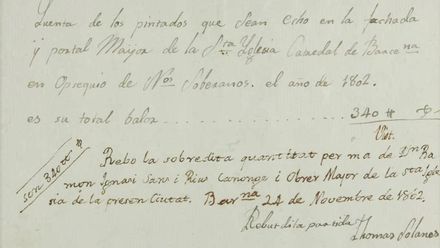 Quenta de los pintados que Sean echo en la fachada
y portal Maijor de la Sta Yglesia Catredal de Barcena
en Opsequio de Nos Soberanos. el año de 1802.
es su total balor .......... 340 ₶
Vist.
son 340 ₶
Rebo la sobredita quantitat per ma de Dn Ra
mon Ignasi Sans i Rius Canonge i Obrer Major de la sta Igle
sia de la presen Ciutat. Barna 24 de Novembre de 1802.
Rebut dita partida
Thomas Solanes